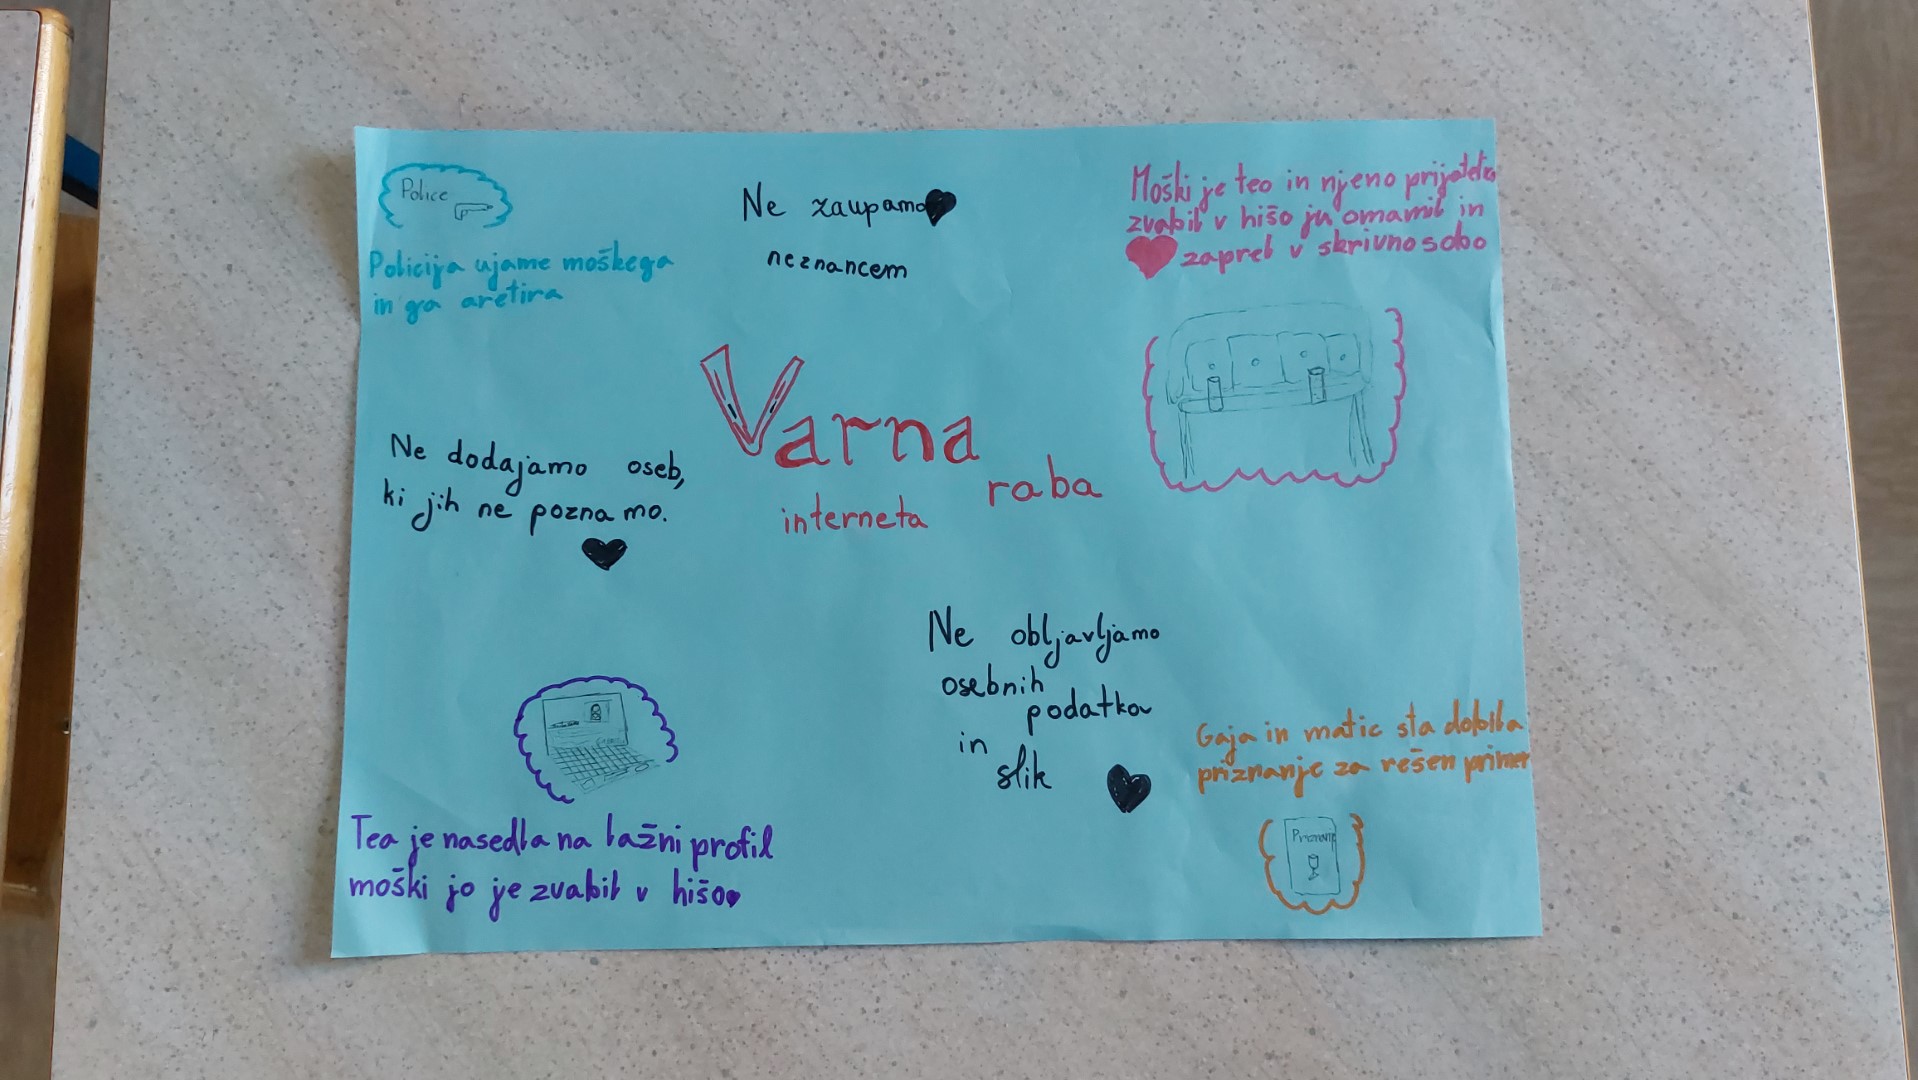 Police
Policija ujame moškega
in ga aretira
Ne zaupamo
neznancem
Moški je teo in njeno prijateljco
zvabil v hišo ju omamil in
zaprel v skrivno sobo
Varna
raba
interneta
Ne dodajamo oseb,
ki jih ne poznamo.
Ne obljavljamo
osebnih
podatkov
in
slik
Tea je nasedla na lažni profil
moški jo je zvabil v hišo
Gaja in matic sta dobila
priznanje za rešen primer
Priznanje